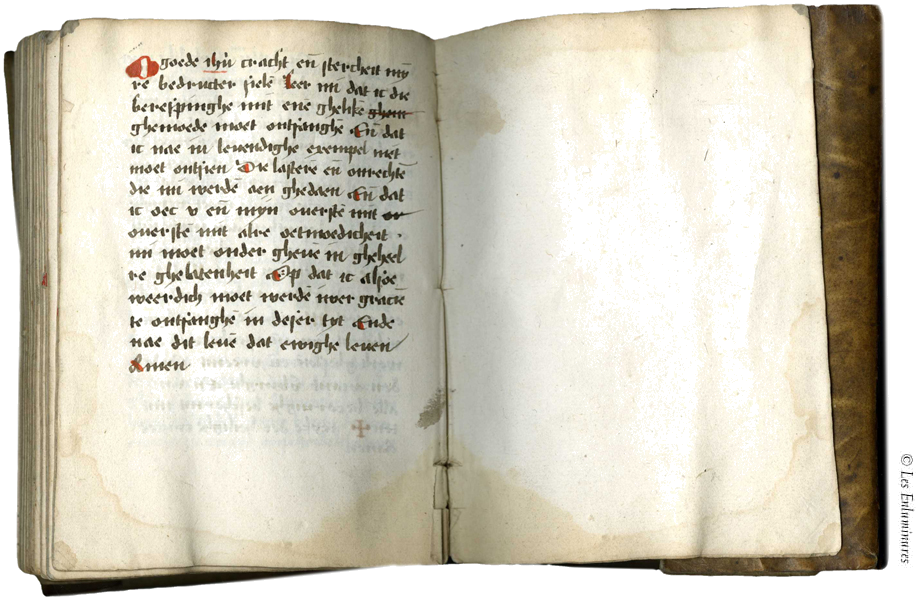 O goede ihū cracht en̄ stercheit mȳ
re bedructer sielē Leer mi dat ic die
berespinghe mit enē ghelikē ghem
ghemoede moet ontfanghē En̄ dat
ic nae in levendighe exempel niet
moet ontsien Die lasterē en̄ onrechtē
die mi werdē aen ghedaen En̄ dat
ic oec v en̄ mȳn ouerstē mit or
ouerstē mit alre oetmoedicheit .
mi moet onder gheuē in gheheel
re ghelatenheit Op dat ic alsoe
weerdich moet werdē uwer gracie
te ontfanghē in deser tyt Ende
nae dit leuē dat ewighe leuen
Amen
© Les Enluminures